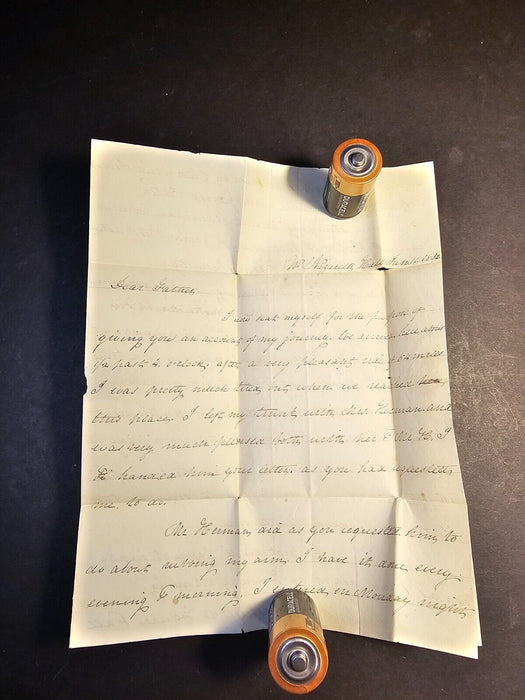 Nazareth Hall
Dear Father,
I now seat myself for the purpose of
giving you an account of my journey. We arrived here about
1/2 past 4. o'clock; after a very pleasant ride
I was pretty much tired out when we reached
this place. I left my trunk with Mrs. Herman and
was very much pleased both with her & Mr H. I
handed him your letter, as you had requested
me to do.
Mr Herman did as you requested him, to
do about rubbing my arm. I have it done every
evening & morning. I on Monday night
DURACELL
DURACELL